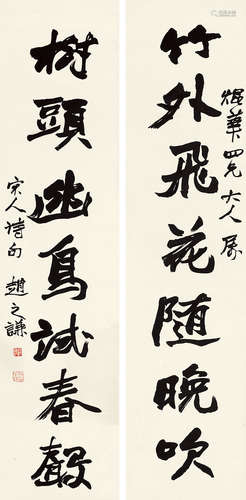 竹外飛花随晚吹
焜華四兄大人屬
樹頭幽鳥試春聲
宋人詩句 趙之謙